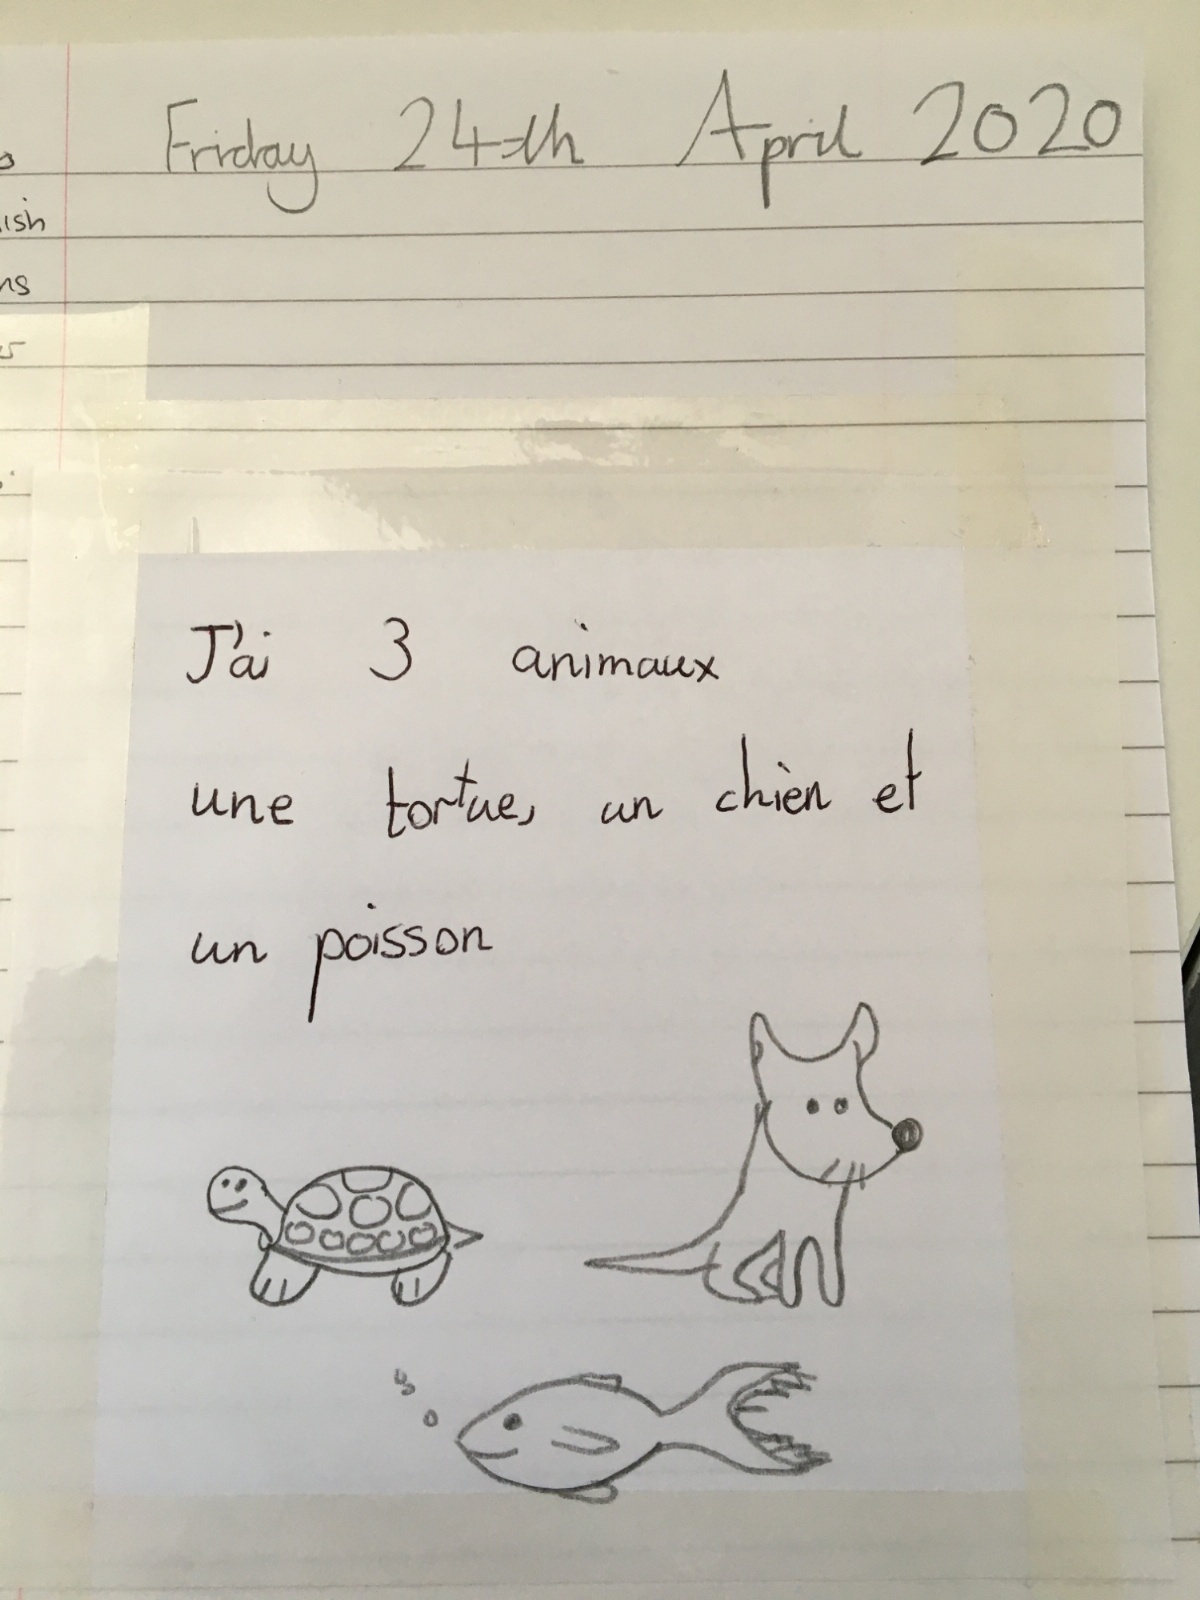 Friday 24th April 2020
ish
J'ai 3 animaux
une tortue, un chièn et
un poisson